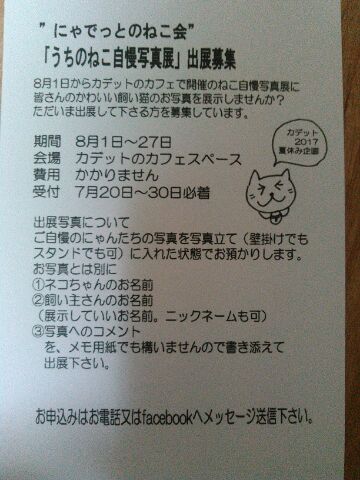 ”にゃでっとのねこ会”
「うちのねこ自慢写真展」出展募集
8月1日からカデットのカフェで開催のねこ自慢写真展に
皆さんのかわいい飼い猫のお写真を展示しませんか?
ただいま出展して下さる方を募集しています。
期間 8月1日〜27日
会場 カデットのカフェスペース
費用 かかりません
受付 7月20日〜30日必着
カデット
2017
夏休み企画
出展写真について
ご自慢のにゃんたちの写真を写真立て(壁掛けでも
スタンドでも可)に入れた状態でお預かりします。
お写真とは別に
①ネコちゃんのお名前
②飼い主さんのお名前
(展示していいお名前。ニックネームも可)
③写真へのコメント
を、メモ用紙でも構いませんので書き添えて
出展下さい。
お申込みはお電話又はfacebookへメッセージ送信下さい。